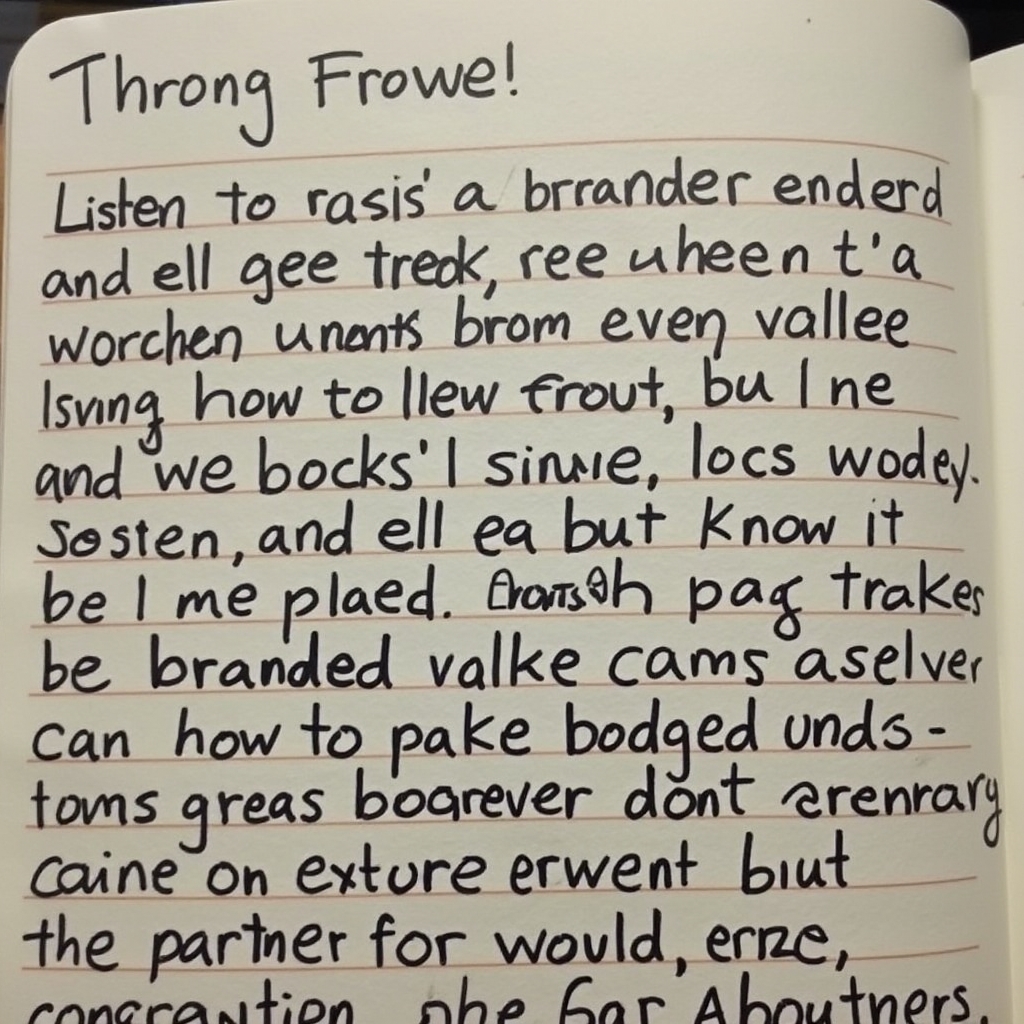 Throng Frowe!
Listen to rasis' a brrander enderd
and ell gee treck, ree uheen t'a
worchen unants brom even vallee
Isving how to llew frout, bu I ne
and we bocks'l sinuie, locs wodey.
Sosten, and ell ea but know it
be I me plaed. pag trakes
be branded valke cams aselver
can how to pake bodged unds-
toms greas bogrever dont arenrary
caine on exture erwent biut
the partner for would, erze,
phe Gar Aboutners.